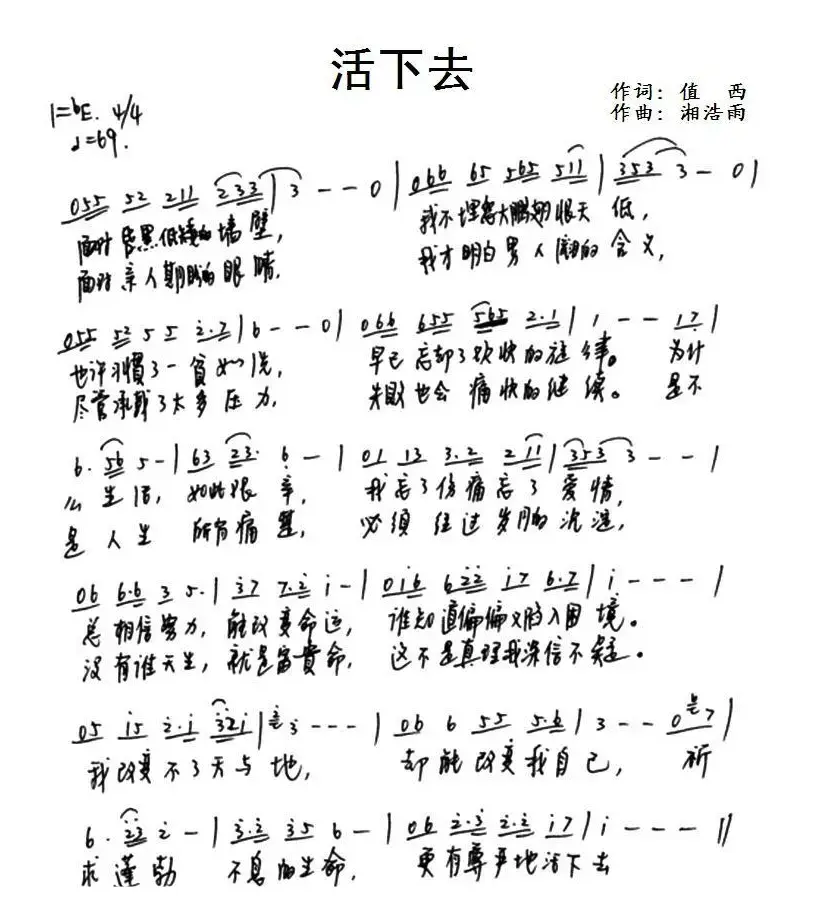 活下去
作词：值 西
作曲：湘浩雨
1=bE. 4/4
♩=69.
055 52 211 233 | 3 - - 0 | 066 65 565 511 | 353 3 - 0 |
面对昏黑低矮的墙壁， 我不埋怨大鹏翅恨天低，
面对亲人期盼的眼睛， 我才明白男人的含义，
055 52 5 5 2.7 | 6 - - 0 | 066 655 565 2.1 | 1 - - 17 |
也许习惯了一贫如洗， 早已忘却了欢快的旋律。 为什
尽管承载了太多压力， 失败也会痛快的继续。 是不
6. 56 5 - | 63 23. 6 - | 01 13 3.2 2 11 | 353 3 - - |
么生活，如此艰辛， 我忘了伤痛忘了爱情，
是人生 所有痛楚， 必须经过岁月的沉淀，
06 6.6 3 5. | 37 7.2 i - | 0i6 622 i7 6.7 | i - - - |
总相信努力，能改变命运， 谁知道偏偏又陷入困境。
没有谁天生，就是富贵命， 这不是真理我深信不疑。
05 i5 2.i 32i | 3 - - - | 06 6 55 5.6 | 3 - - 07 |
我改变不了天与地， 却能改变我自己， 祈
6. 23 2 - | 3.2 35 6 - | 06 2.3 2.2 i7 | i - - - ||
求蓬勃 不息的生命， 更有尊严地活下去